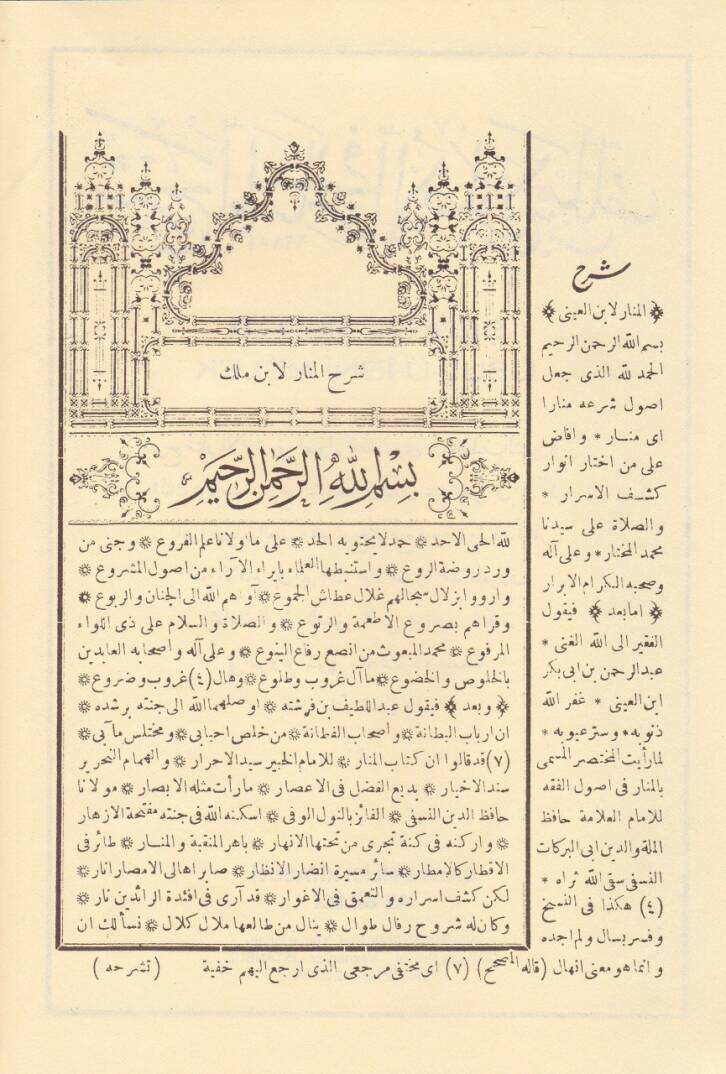 شرح المنار لابن ملك
بسم الله الرحمن الرحيم
لله الحى الاحد * حمد لا يحتويه الحد * على ما اولانا علم الفروع * وجنى من
ورد روضة الروع * واستنبطها العلماء بابراء الآراء من اصول المشروع *
وارووا بزلال سجالهم غلال عطاش الجموع * آواهم الله الى الجنان والربوع *
وقراهم بصروع الاطعمة والرتوع * والصلاة والسلام على ذى اللواء
المرفوع * محمد المبعوث من انصع رفاع الينوع * وعلى آله واصحابه العابدين
بالخلوص والخضوع * ما آل غروب وطلوع * وهال (٤) غروب وضروع *
﴿ وبعد ﴾ فيقول عبد اللطيف بن فرشته * اوصلهما الله الى جنته برشده *
ان ارباب البطانة * واصحاب الفطانة * من خلص احبابى * ومختلس مآبى *
(٧) قد قالوا ان كتاب المنار * للامام الخبير سيد الاحرار * والهمام النحرير
سند الاخيار * بديع الفضل فى الاعصار * ما رأت مثله الابصار * مولانا
حافظ الدين النسفى * الفائز بالنول الوفى * اسكنه الله فى جنته مفتحة الازهار
* واركنه فى كنة تجرى من تحتها الانهار * باهر المنقبة والمنار * طائر فى
الاقطار كالامطار * سائر مسيرة انضار الانظار * صابر اهالى الامصار انار *
لكن كشف اسراره والتعمق فى الاغوار * قد آرى فى افئدة الرائدين نار *
وكان له شروح رفال طوال * ينال من طالعها ملال كلال * نسألك ان
شرح
﴿ المنار لابن العينى ﴾
بسم الله الرحمن الرحيم
الحمد لله الذى جعل
اصول شرعه منارا
اى منار * وافاض
على من اختار انوار
كشف الاسرار *
والصلاة على سيدنا
محمد المختار * وعلى آله
وصحبه الكرام الابرار
﴿ اما بعد ﴾ فيقول
الفقير الى الله الغنى *
عبد الرحمن بن ابى بكر
ابن العينى * غفر الله
ذنوبه * وستر عيوبه *
لما رأيت المختصر المسمى
بالمنار فى اصول الفقه
للامام العلامة حافظ
الملة والدين ابى البركات
النسفى سقى الله ثراه *
(٤) هكذا فى النسخ
وفسر بسال ولم اجده
وانما هو معنى انهال (قاله المصحح) (٧) اى مختفى مرجعى الذى ارجع اليهم خفية (تشرحه)